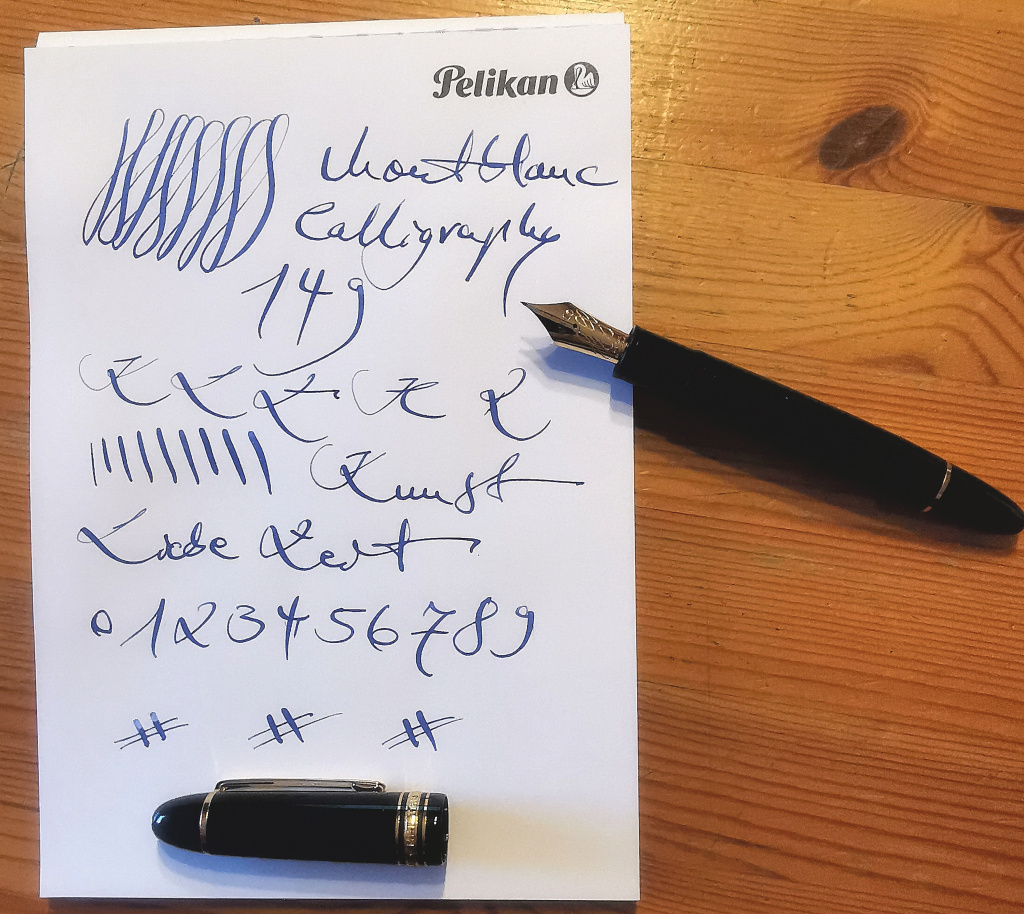 Pelikan
Montblanc
Calligraphy
149
Kunst
Liebe Zeit
0 1 2 3 4 5 6 7 8 9
# # #